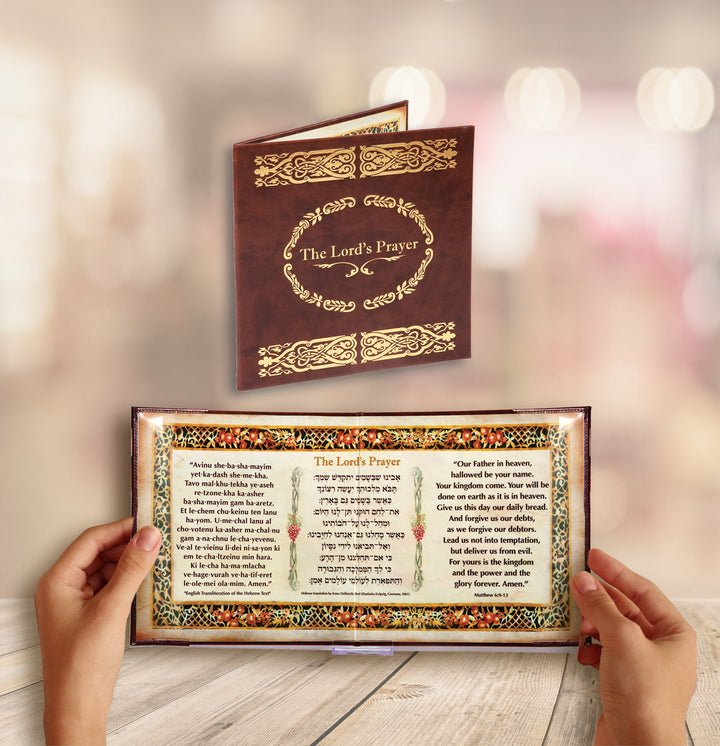 The Lord's Prayer
"Avinu she-ba-sha-mayim
yet-ka-dash she-me-kha.
Tavo mal-khu-tekha ye-aseh
re-tzone-kha ka-asher
ba-sha-mayim gam ba-aretz.
Et le-chem chu-keinu ten lanu
ha-yom. U-me-chal lanu al
cho-votenu ka-asher ma-chal-nu
gam a-na-chnu le-cha-yevenu.
Ve-al te-vieinu li-dei ni-sa-yon ki
em te-cha-ltzeinu min hara.
Ki le-cha ha-ma-mlacha
ve-hage-vurah ve-ha-tif-eret
le-ole-mei ola-mim. Amen."
"English Transliteration of the Hebrew Text"
The Lord's Prayer
אבינו שבשמים יתקדש שמך.
תבא מלכותך יעשה רצונך
כאשר בשמים גם בארץ:
את-לחם חוקנו תן-לנו היום:
ומחל-לנו על-חבותינו
כאשר מחלנו גם-אנחנו לחיבינו:
ואל-תביאנו לידי נסיון
כי אם-תחלצנו מן-הרע:
כי לך הממלכה והגבורה
והתפארת לעולמי עולמים אמן:
Hebrew translation by Franz Delitzsch, Leipzig, Germany,
"Our Father in heaven,
hallowed be your name.
Your kingdom come. Your will be
done on earth as it is in heaven.
Give us this day our daily bread.
And forgive us our debts,
as we forgive our debtors.
Lead us not into temptation,
but deliver us from evil.
For yours is the kingdom
and the power and the
glory forever. Amen."
Matthew 6:9-13